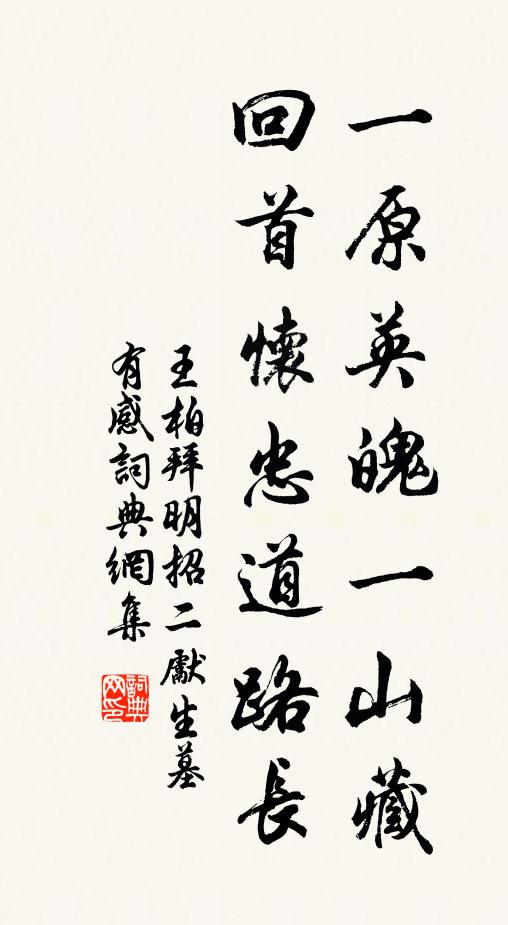 一原英魄一山藏
回首懷忠道路長
王柏拜明招二獻生墓
有感詞典網集
詞典网印